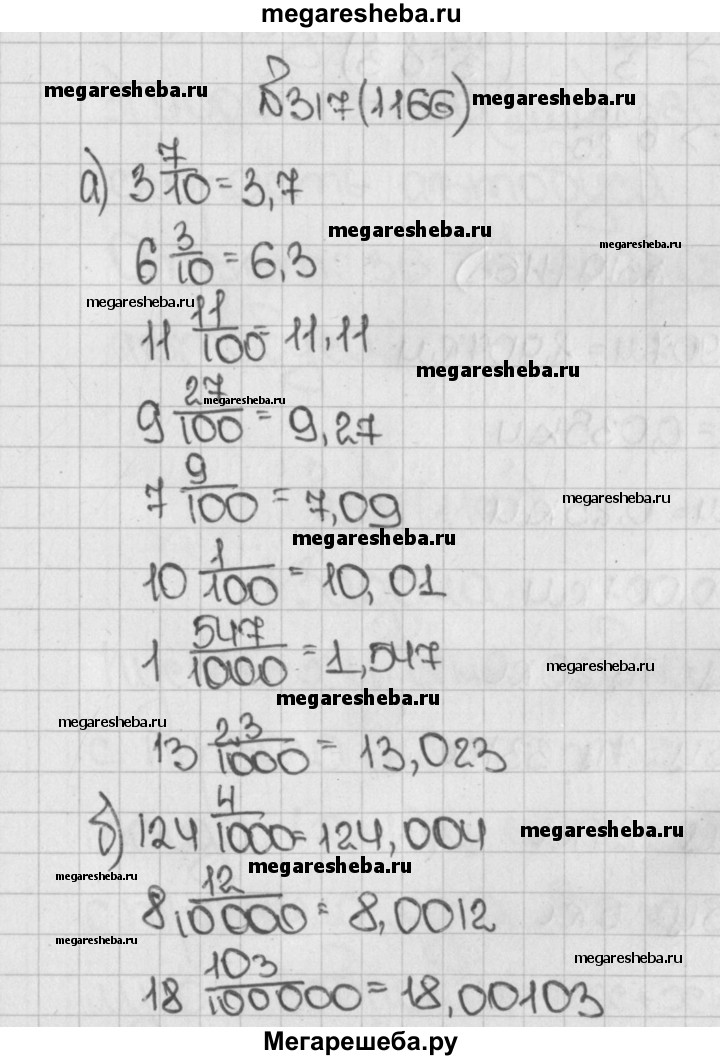 megaresheba.ru
№317(1166) megaresheba.ru
megaresheba.ru
а) 3 7/10 = 3,7
megaresheba.ru
6 3/10 = 6,3 megaresheba.ru
megaresheba.ru
11 11/100 = 11,11
megaresheba.ru
9 27/100 = 9,27
megaresheba.ru
7 9/100 = 7,09 megaresheba.ru
megaresheba.ru
10 1/100 = 10,01
1 547/1000 = 1,547 megaresheba.ru
megaresheba.ru
megaresheba.ru
13 23/1000 = 13,023
б) 124 4/1000 = 124,004 megaresheba.ru
megaresheba.ru
megaresheba.ru
8 12/10000 = 8,0012
megaresheba.ru
megaresheba.ru
18 103/100000 = 18,00103
Мегарешеба.ру